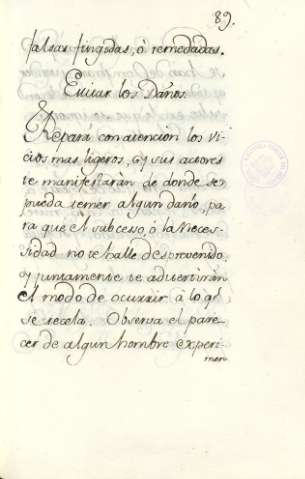 89.
falsas fingodas, ó remedadas.
Evitar los Daños.
Repara con atencion los vi-
cios mas ligeros, y sus actores
te manifestaràn de donde se
pueda temer algun daño, pa
ra que el subcesso, ó la neces-
sidad no te halle desprevenido,
y juntamente te advertiràn
el modo de ocurrir à lo qe.
se recela. Observa el pare-
cer de algun hombre experi-
men-